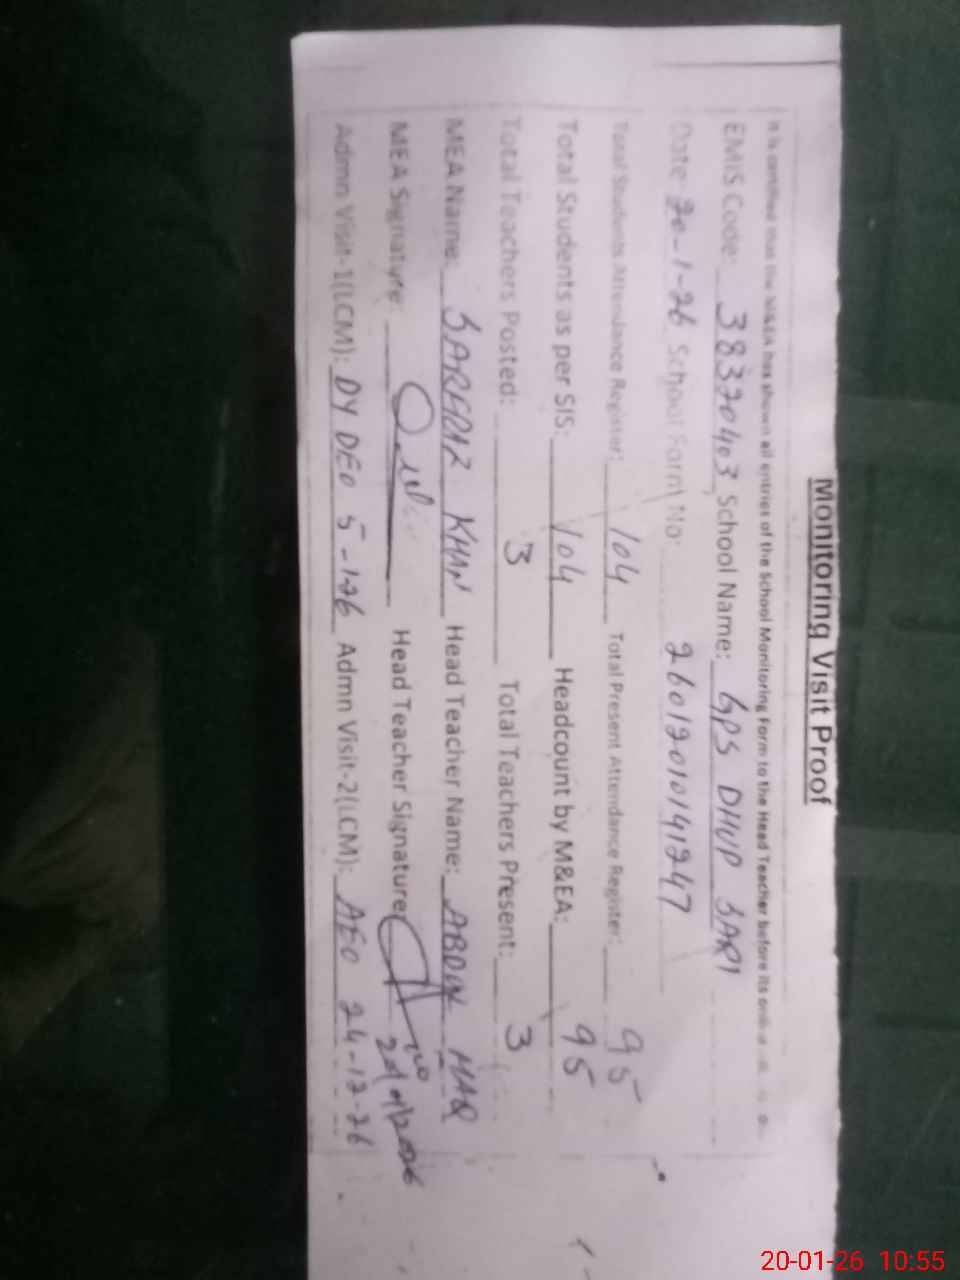 Monitoring Visit Proof
It is certified that the M&EA has shown all entries of the School Monitoring Form to the Head Teacher before its
EMIS Code: 38370403 School Name: GPS DHUP SARI
Date: 20-1-26 School Form No: 26012010141247
Total Students Attendance Register: 104 Total Present Attendance Register: 95
Total Students as per SIS: 104 Headcount by M&EA: 95
Total Teachers Posted: 3 Total Teachers Present: 3
MEA Name: SARFRAZ KHAN Head Teacher Name: ABDUL HAQ
MEA Signature: Head Teacher Signature
Admn Visit-1(LCM): DY DEO 5-1-26 Admn Visit-2(LCM): AEO 24-12-26
20-01-26 10:55